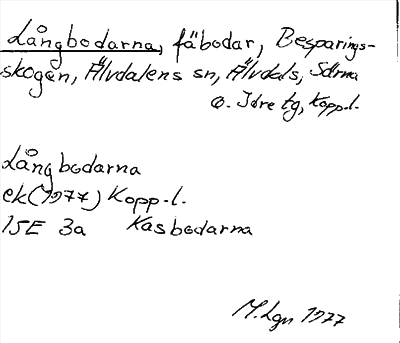 Långbodarna, fäbodar, Besparings-
skogen, Älvdalens sn, Älvdals, Särna
o. Idre tg, Kopp.l.
Långbodarna
ek (1977) Kopp.l.
15E 3a Kasbodarna
M.Lgn 1977